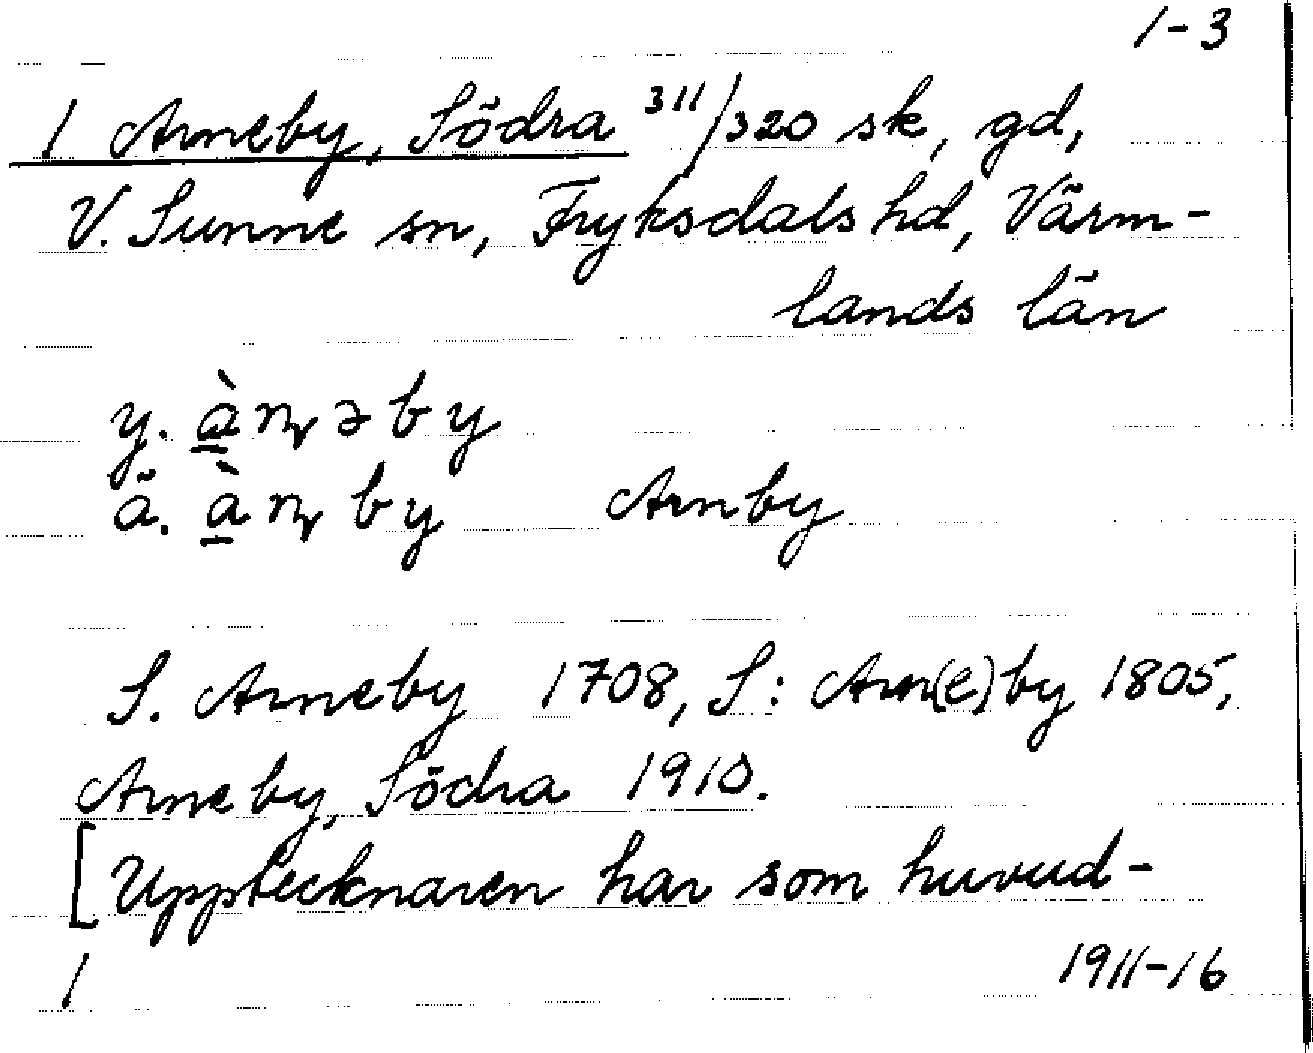 1-3
1 Arneby, Södra 311/320 sk, gd,
V. Sunne sn, Fryksdals hd, Värm-
lands län
y. à̱ɳəby
ä. à̱ɳby Arnby
S. Arneby 1708, S: Arn(e)by 1805,
Arneby, Södra 1910.
[Upptecknaren har som huvud-
1 1911-16